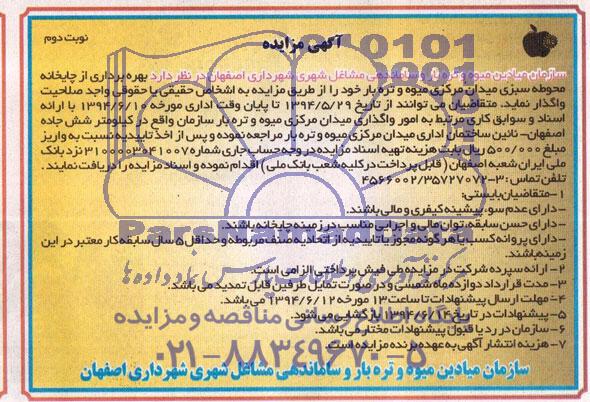 نوبت دوم
آگهی مزایده
سازمان میادین میوه و تره بار و ساماندهی مشاغل شهری شهرداری اصفهان در نظر دارد بهره برداری از چایخانه
محوطه سبزی میدان مرکزی میوه و تره بار خود را از طریق مزایده به اشخاص حقیقی یا حقوقی واجد صلاحیت
واگذار نماید. متقاضیان می توانند از تاریخ ۱۳۹۴/۵/۲۹ تا پایان وقت اداری مورخه ۱۳۹۴/۶/۱۰ با ارائه
اسناد و سوابق کاری مرتبط به امور واگذاری میدان مرکزی میوه و تره بار سازمان واقع در کیلومتر شش جاده
اصفهان - نائین ساختمان اداری میدان مرکزی میوه و تره بار مراجعه نموده و پس از اخذ تاییدیه نسبت به واریز
مبلغ ۵۰۰/۰۰۰ ریال بابت هزینه تهیه اسناد مزایده در وجه حساب جاری شماره ۳۱۰۰۰۰۳۰۴۱۰۰۷ نزد بانک
ملی ایران شعبه اصفهان ( قابل پرداخت در کلیه شعب بانک ملی ) اقدام نموده و اسناد مزایده را دریافت نمایند .
تلفن تماس :
۱- متقاضیان بایستی:
- دارای عدم سوء پیشینه کیفری و مالی باشند.
- دارای حسن سابقه، توان مالی و اجرایی مناسب در زمینه چایخانه باشند.
- دارای پروانه کسب یا هر گونه مجوز یا تاییدیه از اتحادیه صنف مربوطه و حداقل ۵ سال سابقه کار معتبر در این
زمینه باشند.
۲- ارائه سپرده شرکت در مزایده طی فیش پرداختی الزامی است.
۳- مدت قرارداد دوازده ماه شمسی و در صورت تمایل طرفین قابل تمدید می باشد.
۴- مهلت ارسال پیشنهادات تا ساعت ۱۳ مورخه ۱۳۹۴/۶/۱۲ می باشد.
۵- پیشنهادات در تاریخ ۱۳۹۴/۶/۱۴ بازگشایی می شود.
۶- سازمان در رد یا قبول پیشنهادات مختار می باشد.
۷- هزینه انتشار آگهی به عهده برنده مزایده است.
سازمان میادین میوه و تره بار و ساماندهی مشاغل شهری شهرداری اصفهان
پایگاه اطلاع رسانی مناقصه و مزایده
۰۲۱-۸۸۳۴۹۶۷۰-۵